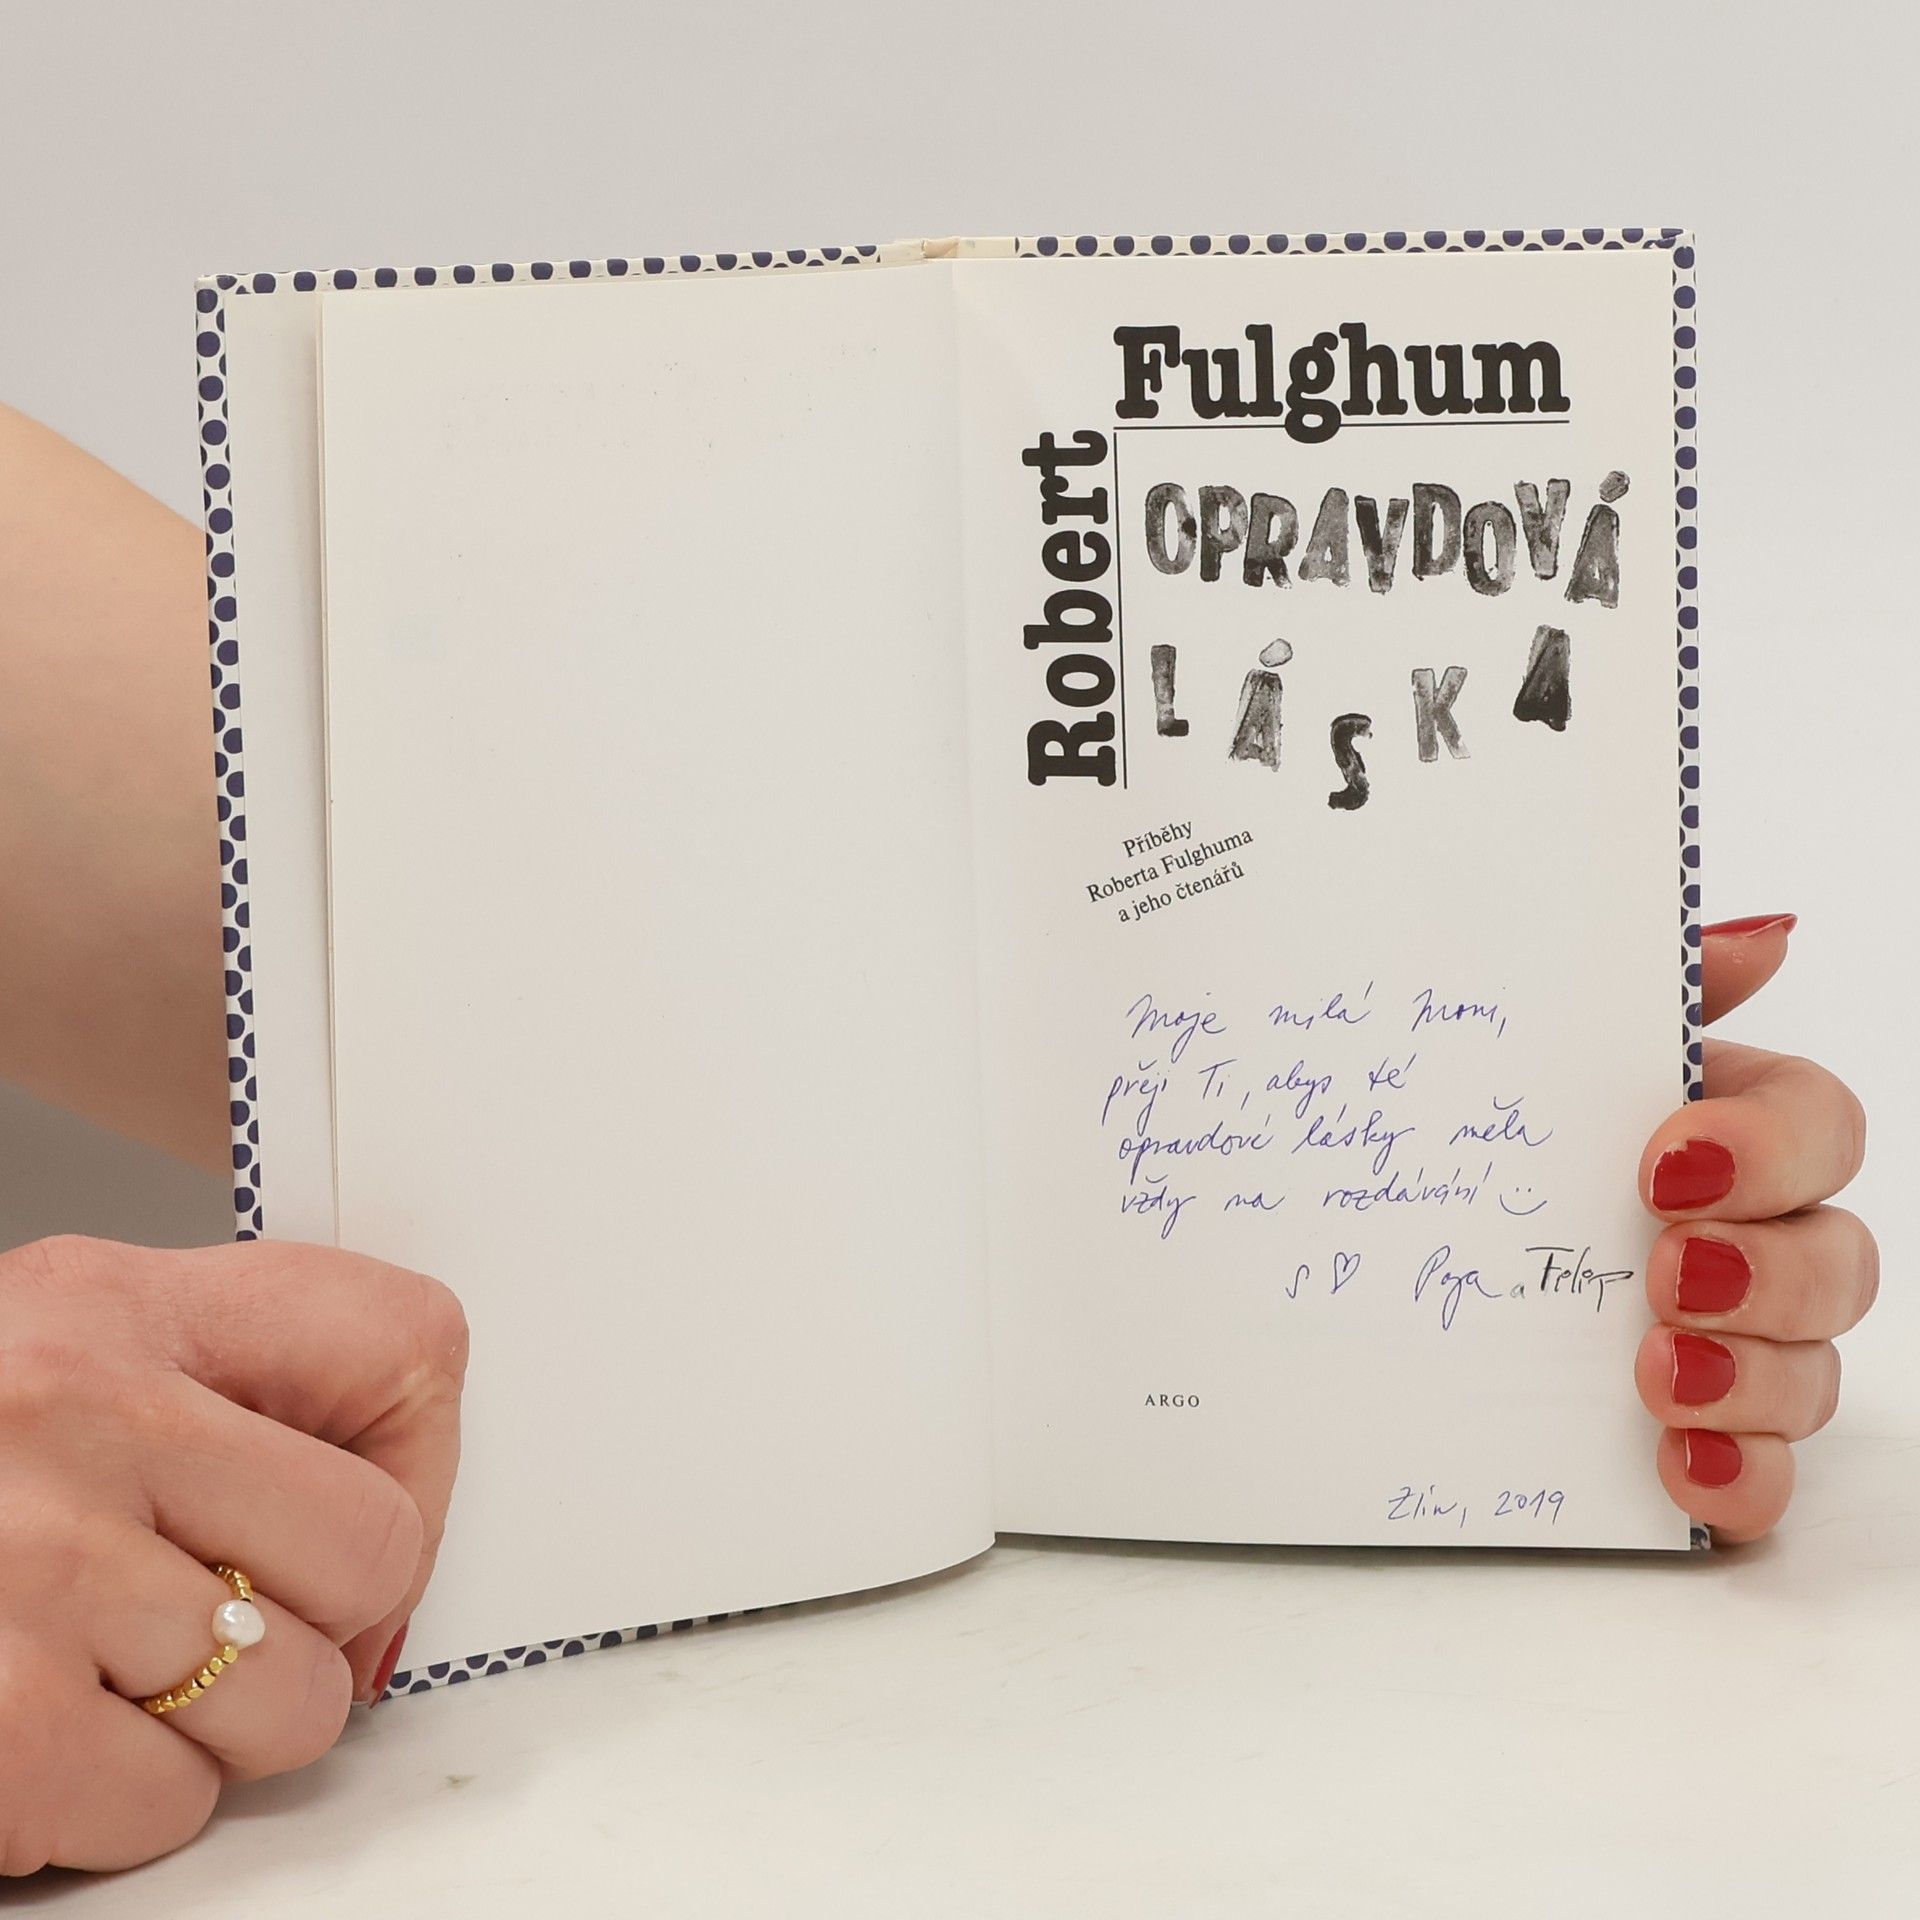 Robert
Fulghum
OPRAVDOVÁ
LÁSKA
Příběhy
Roberta Fulghuma
a jeho čtenářů
Moje milá Moni,
přeji Ti, abys té
opravdové lásky měla
vždy na rozdávání :)
s ♡ a Filip
ARGO
Zlín, 2019